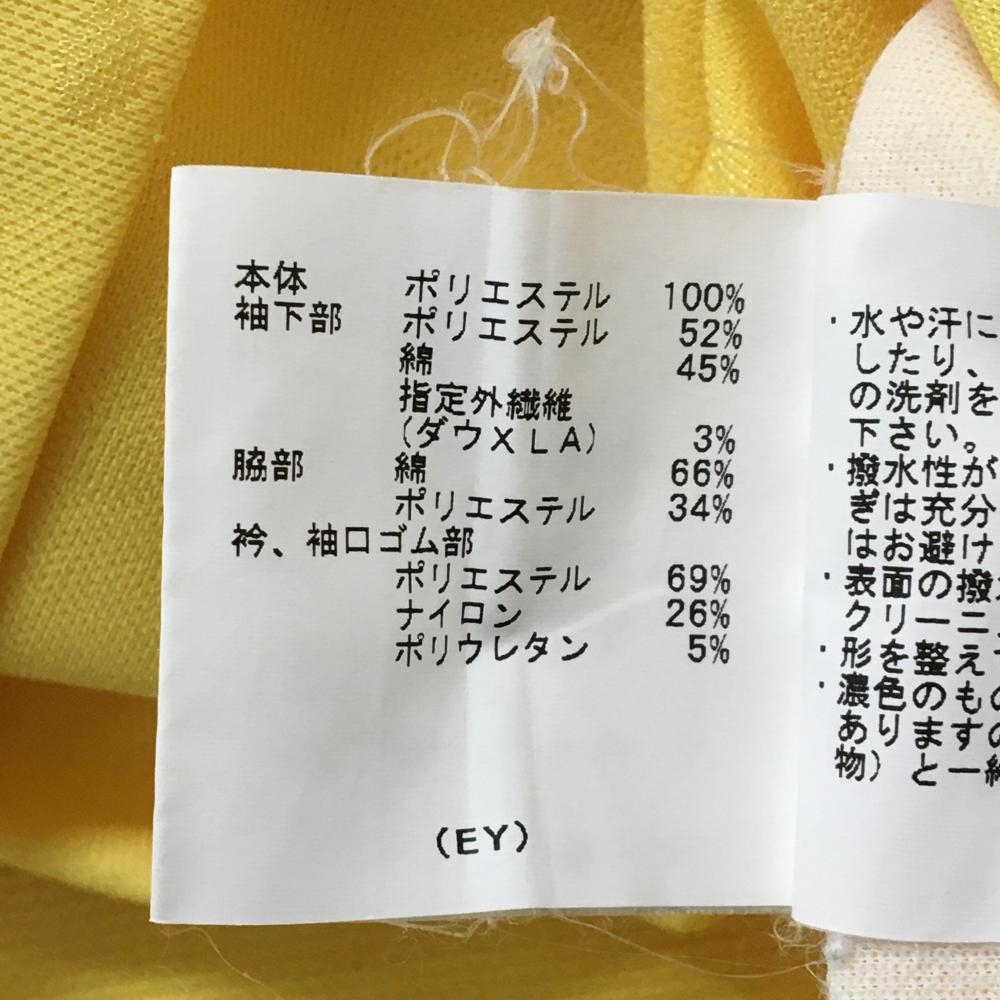 本体 ポリエステル 100%
袖下部 ポリエステル 52%
綿 45%
指定外繊維
(ダウXLA) 3%
脇部 綿 66%
ポリエステル 34%
衿、袖口ゴム部
ポリエステル 69%
ナイロン 26%
ポリウレタン 5%
(EY)
・水や汗に
したり、
の洗剤を
下さい。
・撥水性が
ぎは充分
はお避け
・表面の撥
クリーニ
・形を整え
・濃色のもの
ありますの
物)と一緒